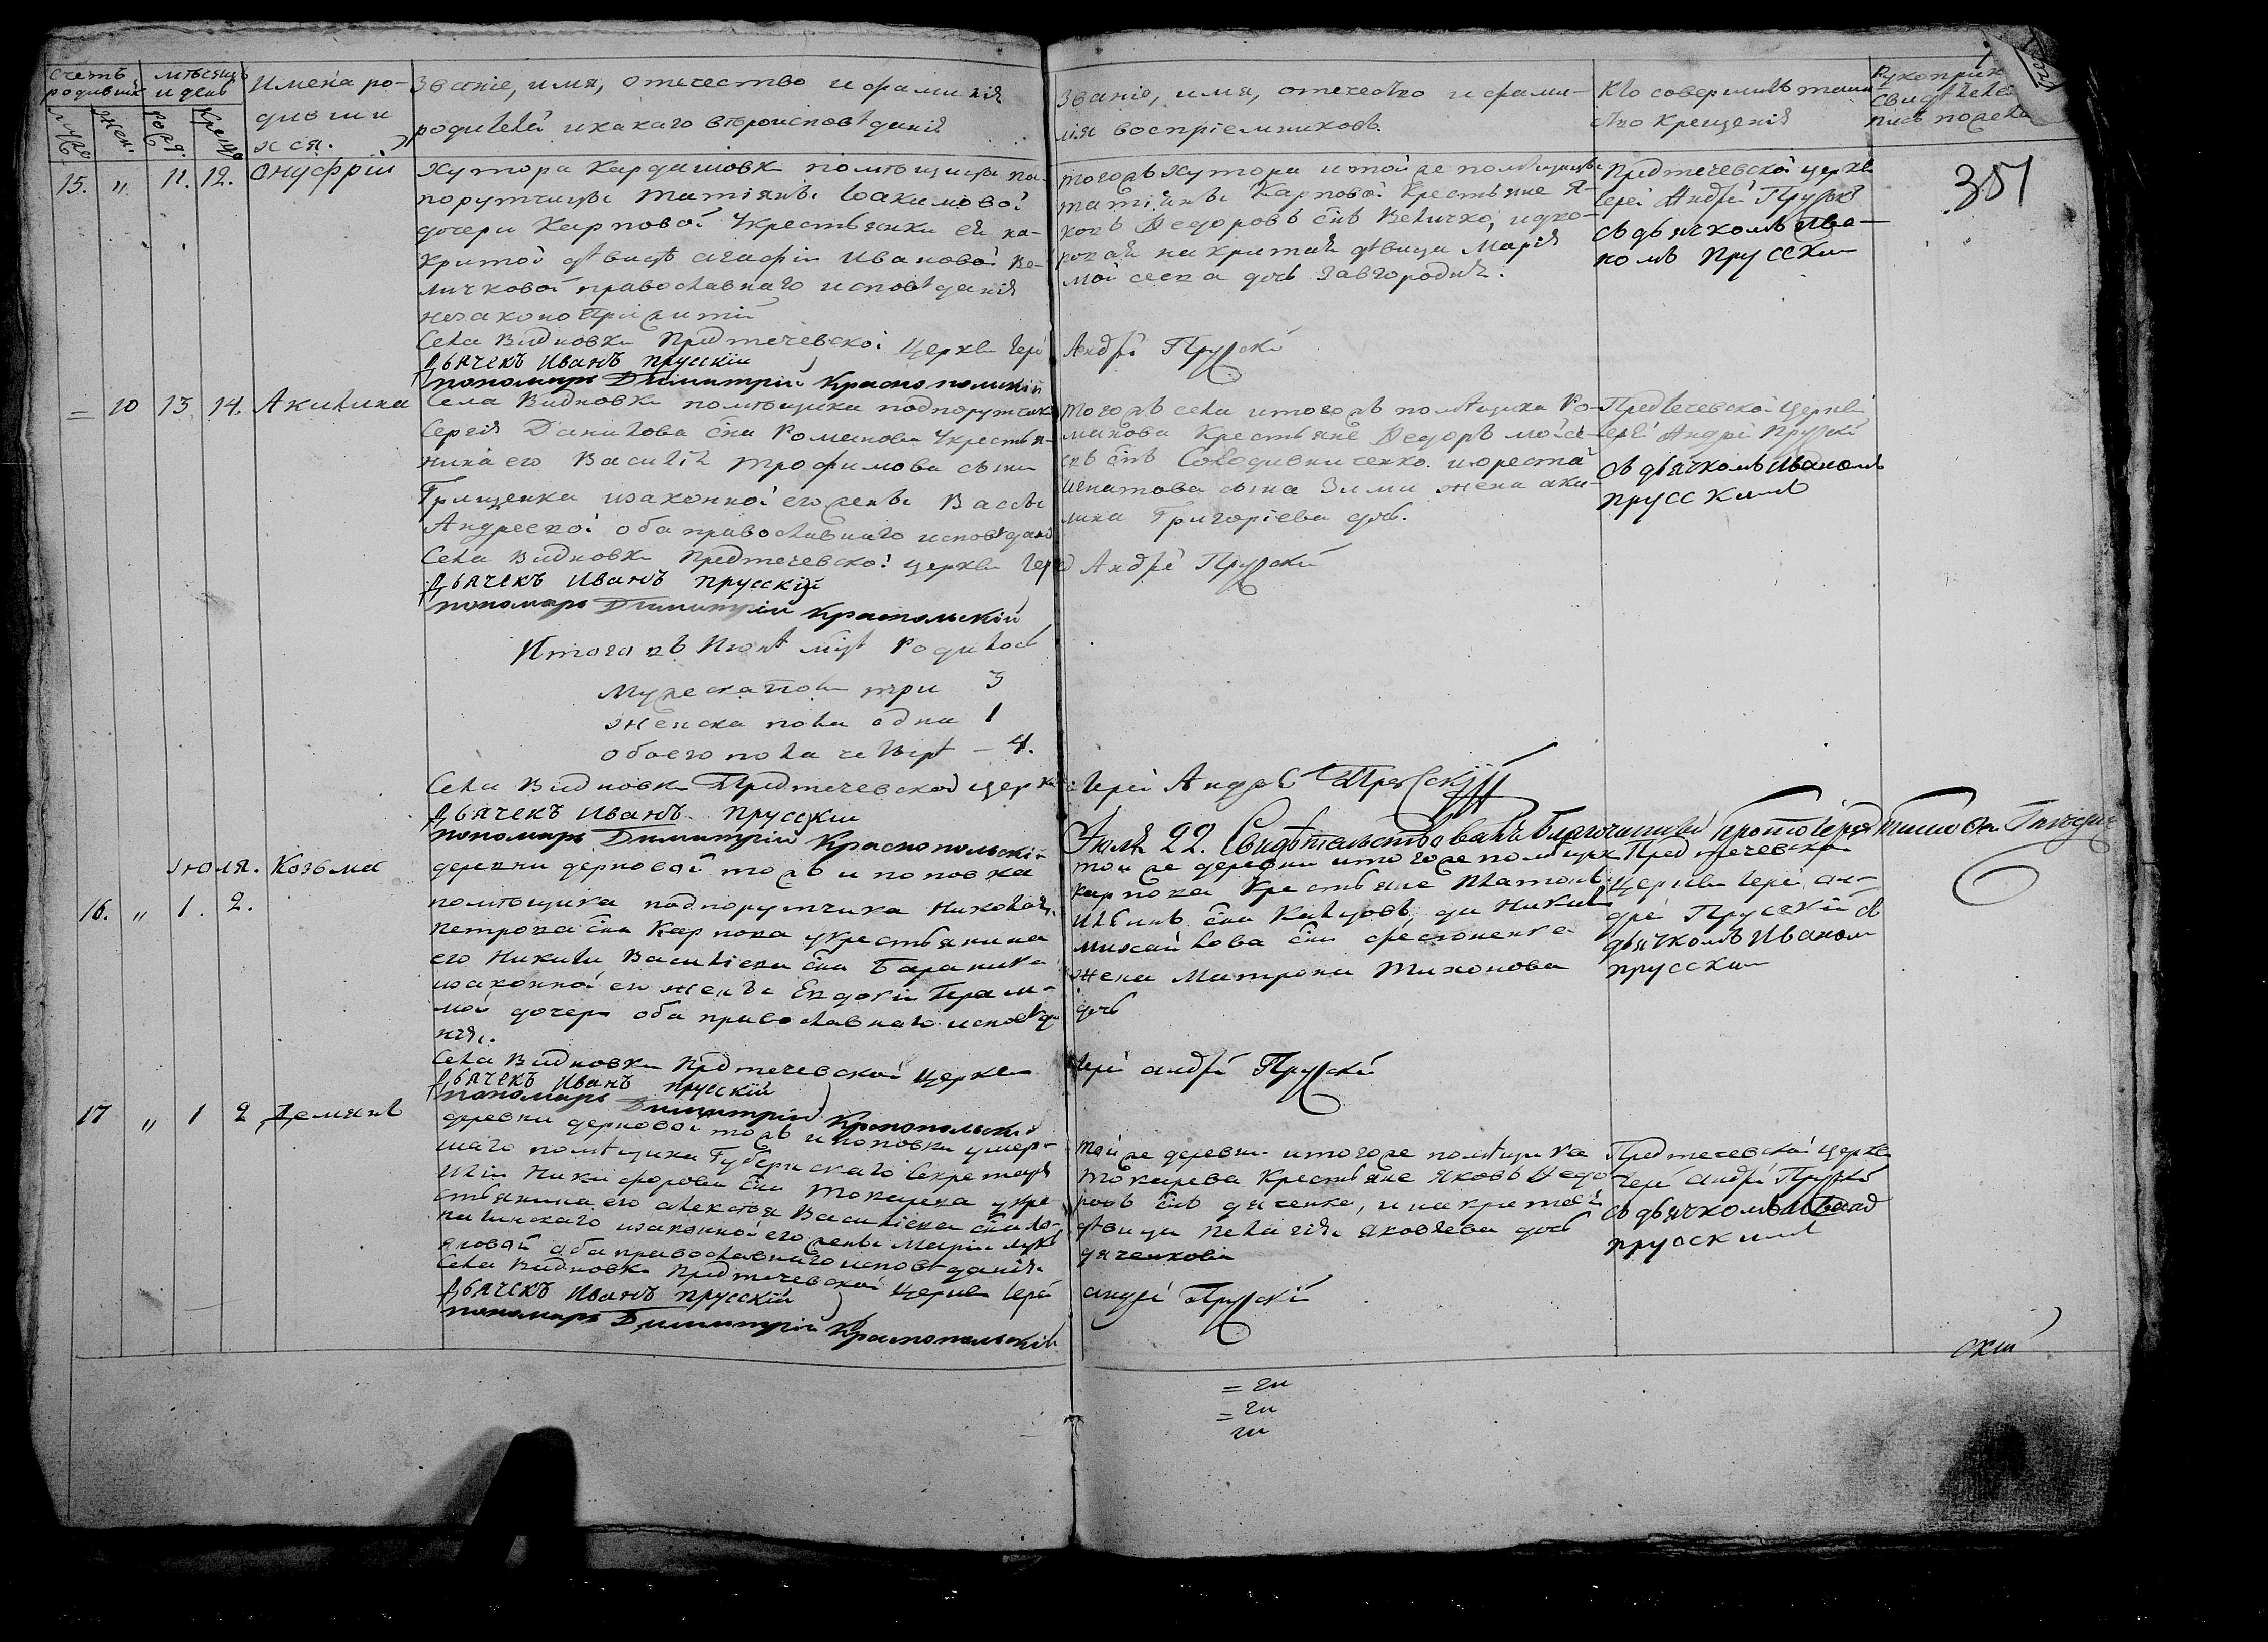 счетъ родивших
мѣсяцъ и день
Имена родивши
хся.
муже.
жен.
рожд.
крещ.
Званіе, имя, отечество и фамилія
родителей и какаго вѣроисповѣданія
Званіе, имя, отечество и фами-
лія воспріемниковъ.
Кто совершилъ таин-
ство крещенія
15. " 11. 12. Онуфрій
хутора Кардашовки помѣщицы по-
порутчицы Татіяны Іоакимовой
дочери Карповой у крестьянки ея на-
критой дѣвицы Агафіи Ивановой Ве-
личковой православнаго исповѣданія
незаконо прижитій
Села Видновки Предтечевской Церкви Іерей
Дьячекъ Иванъ Прусскій
пономарь Димитрій Краснопольскій
тогожъ хутора и той же помѣщицы
Татіяны Карповой крестьяне Я-
ковъ Федоровъ снъ Величко, и дво-
ровая накритая дѣвица Марія
Мойсеева дочь Завгородня.
Андрей Прускій
Предтечевской церкви
Іерей Андрей Прускій
съ дьячкомъ Ива-
номъ Прусским
351
= 10 13 14. Акилина
Села Видновки помѣщика подпорутчика
Сергія Данилова сна Романова у крестья-
нина его Василія Трофимова сына
Грищенка и законной его жены Вассы
Андреевой оба православнаго исповѣдані
Села Видновки Предтечевской церкви Іерей
Дьячекъ Иванъ Прусскій
пономарь Димитрій Краснопольскій
тогожъ села и тогожъ помѣщика Ро-
манова крестьяне Федоръ Мойсе-
евъ снъ Солодивниченко и Ореста
Игнатова сына Зими жена Аки-
лина Григоріева дочь.
Андрей Прускій
Предтечевской Церкви
Іерей Андрей Прускій
съ дьячкомъ Иваномъ
Прусскимъ
Итого въ Июнѣ мцѣ Родилось
Мужеска пола три 3
Женска пола одна 1
Обоего пола четыре – 4.
Села Видновки Предтечевской церкви
Дьячекъ Иванъ Прусскій
пономарь Димитрій Краснопольскій
Іерей Андрей Прусскій
Іюля 22. Свидѣтельствовалъ Благочинный Протоіерей
июля. Козьма
16. " 1. 2.
деревни Дерновой тожъ и Поповка
помѣщика подпорутчика Николая
Петрова сна Карпова у крестьянина
его Никиты Василіева сна Бараника
и законной ен жены Евдокіи Гераси-
мой дочери оба православнаго исповѣда
нія.
Села Видновки Предтечевской Церкви
Дьячекъ Иванъ Прусскій
пономарь Димитрій Краснопольскій
той же деревни и того же помѣщик
Карпова крестьяне Платонъ
Ильинъ снъ Кальцовъ, да Никиты
Михайлова сна
жена Матрона Тихонова
дочь
Іерей Андрей Прускій
Предтечевской
Церкви Іерей Ан-
дрей Прускій съ
дьячкомъ Иваном
Прусским
17 " 1 2 Демянъ
деревни Дерновой тожъ и Поповки умер-
шаго помѣщика Губернскаго Секретаря
Иліи Никифорова сна Токарева у кре
стьянина его Алексѣя Василіева сна
и законной его жены Маріи Лукь
яновой оба православнаго исповѣданія
Села Видновки Предтечевской Церкви Іерей
Дьячекъ Иванъ Прусскій
пономарь Димитрій Краснопольскій
той же деревни и того же помѣщика
Токарева крестьяне Яковъ Федо
ровъ снъ Дяченко, и накритая
дѣвица Пелагія Яковлева дочь
Дяченкова
Андрей Прускій
Предтечевской Церкви
Іерей Андрей Прускій
съ дьячкомъ Ивано
Прусскимъ
скій